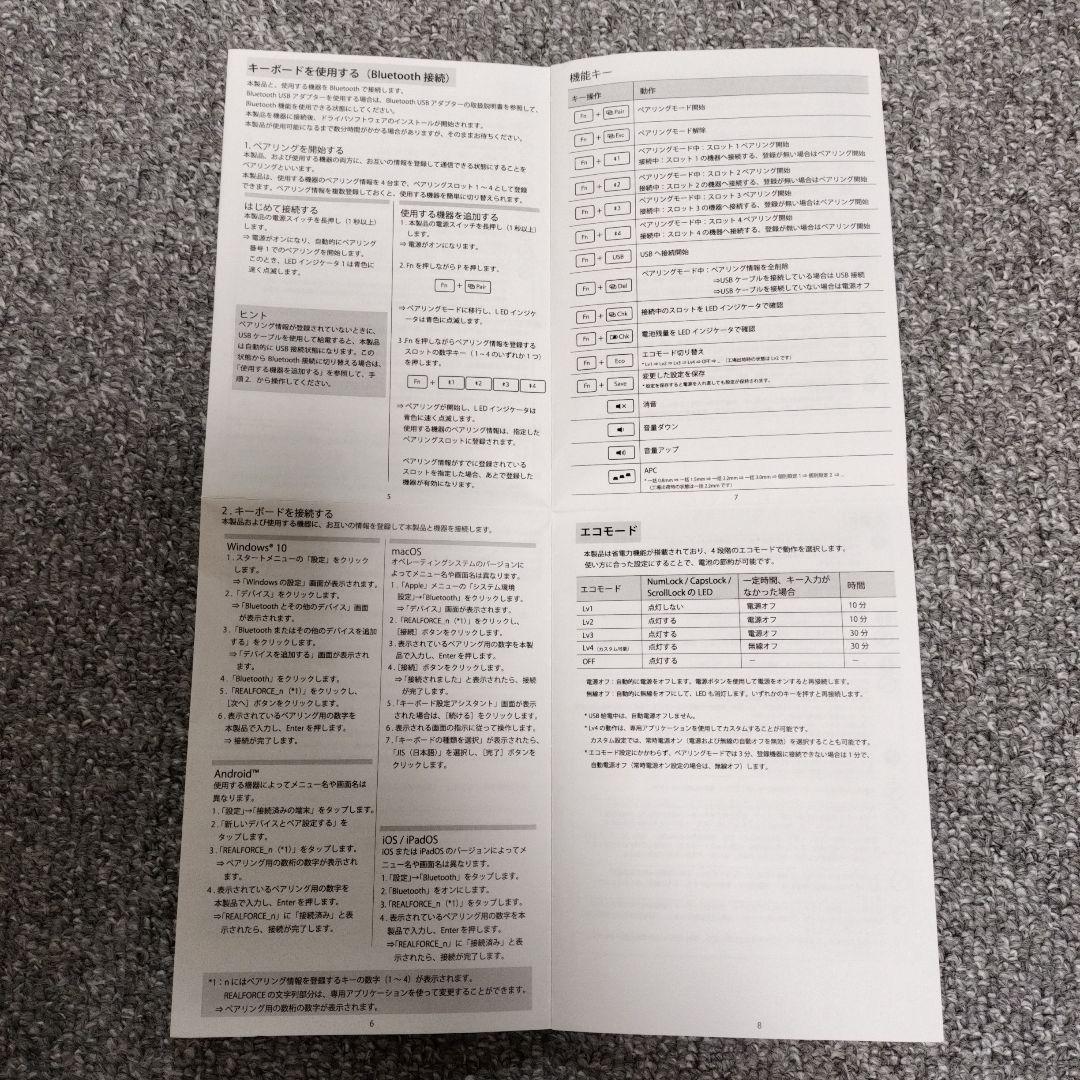 キーボードを使用する（Bluetooth 接続）
本製品と、使用する機器を Bluetooth で接続します。
Bluetooth USB アダプターを使用する場合は、Bluetooth USB アダプターの取扱説明書を参照して、
Bluetooth 機能を使用できる状態にしてください。
本製品を機器に接続後、ドライバソフトウェアのインストールが開始されます。
本製品が使用可能になるまで数分時間がかかる場合がありますが、そのままお待ちください。
1. ペアリングを開始する
本製品、および使用する機器の両方に、お互いの情報を登録して通信できる状態にすることを
ペアリングといいます。
本製品は、使用する機器のペアリング情報を 4 台まで、ペアリングスロット 1 〜 4 として登録
できます。ペアリング情報を複数登録しておくと、使用する機器を簡単に切り替えられます。
はじめて接続する
本製品の電源スイッチを長押し（1 秒以上）
します。
⇒ 電源がオンになり、自動的にペアリング
番号 1 でのペアリングを開始します。
このとき、LED インジケータ 1 は青色に
速く点滅します。
ヒント
ペアリング情報が登録されていないときに、
USB ケーブルを使用して給電すると、本製品
は自動的に USB 接続状態になります。この
状態から Bluetooth 接続に切り替える場合は、
「使用する機器を追加する」を参照して、手
順 2. から操作してください。
使用する機器を追加する
1. 本製品の電源スイッチを長押し（1 秒以上）
します。
⇒ 電源がオンになります。
2. Fn を押しながら P を押します。
Fn + Pair
⇒ ペアリングモードに移行し、LED インジケ
ータは青色に点滅します。
3 .Fn を押しながらペアリング情報を登録する
スロットの数字キー（1 〜 4 のいずれか 1 つ）
を押します。
Fn + 1 2 3 4
⇒ ペアリングが開始し、LED インジケータは
青色に速く点滅します。
使用する機器のペアリング情報は、指定した
ペアリングスロットに登録されます。
ペアリング情報がすでに登録されている
スロットを指定した場合、あとで登録した
機器が有効になります。
5
機能キー
キー操作 動作
Fn + Pair ペアリングモード開始
Fn + Esc ペアリングモード解除
Fn + 1 ペアリングモード中：スロット 1 ペアリング開始
接続中：スロット 1 の機器へ接続する、登録が無い場合はペアリング開始
Fn + 2 ペアリングモード中：スロット 2 ペアリング開始
接続中：スロット 2 の機器へ接続する、登録が無い場合はペアリング開始
Fn + 3 ペアリングモード中：スロット 3 ペアリング開始
接続中：スロット 3 の機器へ接続する、登録が無い場合はペアリング開始
Fn + 4 ペアリングモード中：スロット 4 ペアリング開始
接続中：スロット 4 の機器へ接続する、登録が無い場合はペアリング開始
Fn + USB USB へ接続開始
Fn + Del ペアリングモード中：ペアリング情報を全削除
⇒USB ケーブルを接続している場合は USB 接続
⇒USB ケーブルを接続していない場合は電源オフ
Fn + Chk 接続中のスロットを LED インジケータで確認
Fn + Chk 電池残量を LED インジケータで確認
Fn + Eco エコモード切り替え
* Lv1 ⇒ Lv2 ⇒ Lv3 ⇒ Lv4 ⇒ OFF ⇒ ... （工場出荷時の状態は Lv2 です）
Fn + Save 変更した設定を保存
* 設定を保存すると電源を入れ直しても設定が保持されます。
消音
音量ダウン
音量アップ
APC
* 一括 0.8mm ⇒ 一括 1.5mm ⇒ 一括 2.2mm ⇒ 一括 3.0mm ⇒ 個別設定 1 ⇒ 個別設定 2 ⇒ ...
（工場出荷時の状態は一括 2.2mm です）
7
2 . キーボードを接続する
本製品および使用する機器に、お互いの情報を登録して本製品と機器を接続します。
Windows® 10
1 . スタートメニューの「設定」をクリック
します。
⇒「Windows の設定」画面が表示されます。
2 .「デバイス」をクリックします。
⇒「Bluetooth とその他のデバイス」画面
が表示されます。
3 .「Bluetooth またはその他のデバイスを追加
する」をクリックします。
⇒「デバイスを追加する」画面が表示され
ます。
4 .「Bluetooth」をクリックします。
5 .「REALFORCE_n（*1）」をクリックし、
［次へ］ボタンをクリックします。
6 . 表示されているペアリング用の数字を
本製品で入力し、Enter を押します。
⇒ 接続が完了します。
Android™
使用する機器によってメニュー名や画面名は
異なります。
1 .「設定」→「接続済みの端末」をタップします。
2 .「新しいデバイスとペア設定する」を
タップします。
3 .「REALFORCE_n（*1）」をタップします。
⇒ ペアリング用の数桁の数字が表示され
ます。
4 . 表示されているペアリング用の数字を
本製品で入力し、Enter を押します。
⇒「REALFORCE_n」に「接続済み」と表
示されたら、接続が完了します。
macOS
オペレーティングシステムのバージョンに
よってメニュー名や画面名は異なります。
1 .「Apple」メニューの「システム環境
設定」→「Bluetooth」をクリックします。
⇒「デバイス」画面が表示されます。
2 .「REALFORCE_n（*1）」をクリックし、
［接続］ボタンをクリックします。
3 . 表示されているペアリング用の数字を本製
品で入力し、Enter を押します。
4 .［接続］ボタンをクリックします。
⇒「接続されました」と表示されたら、接続
が完了します。
5 .「キーボード設定アシスタント」画面が表示
された場合は、［続ける］をクリックします。
6 . 表示される画面の指示に従って操作します。
7 .「キーボードの種類を選択」が表示されたら、
「JIS（日本語）」を選択し、［完了］ボタンを
クリックします。
iOS / iPadOS
iOS または iPadOS のバージョンによってメ
ニュー名や画面名は異なります。
1 .「設定」→「Bluetooth」をタップします。
2 .「Bluetooth」をオンにします。
3 .「REALFORCE_n（*1）」をタップします。
4 . 表示されているペアリング用の数字を本
製品で入力し、Enter を押します。
⇒「REALFORCE_n」に「接続済み」と表
示されたら、接続が完了します。
*1：n にはペアリング情報を登録するキーの数字（1 〜 4）が表示されます。
REALFORCE の文字列部分は、専用アプリケーションを使って変更することができます。
⇒ ペアリング用の数桁の数字が表示されます。
6
エコモード
本製品は省電力機能が搭載されており、4 段階のエコモードで動作を選択します。
使い方に合った設定にすることで、電池の節約が可能です。
エコモード NumLock / CapsLock / ScrollLock の LED 一定時間、キー入力がなかった場合 時間
Lv1 点灯しない 電源オフ 10 分
Lv2 点灯する 電源オフ 10 分
Lv3 点灯する 電源オフ 30 分
Lv4（カスタム可能） 点灯する 無線オフ 30 分
OFF 点灯する － －
電源オフ：自動的に電源をオフします。電源ボタンを使用して電源をオンすると再接続します。
無線オフ：自動的に無線をオフにして、LED も消灯します。いずれかのキーを押すと再接続します。
* USB 給電中は、自動電源オフしません。
* Lv4 の動作は、専用アプリケーションを使用してカスタムすることが可能です。
カスタム設定では、常時電源オン（電源および無線の自動オフを無効）を選択することも可能です。
* エコモード設定にかかわらず、ペアリングモードでは 3 分、登録機器に接続できない場合は 1 分で、
自動電源オフ（常時電源オン設定の場合は、無線オフ）します。
8